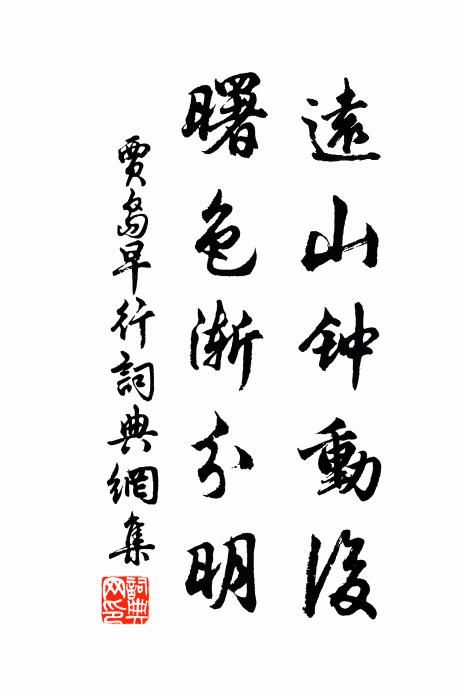 遠山钟動後
曙色漸分明
賈島早行詞典網集
詞典网印